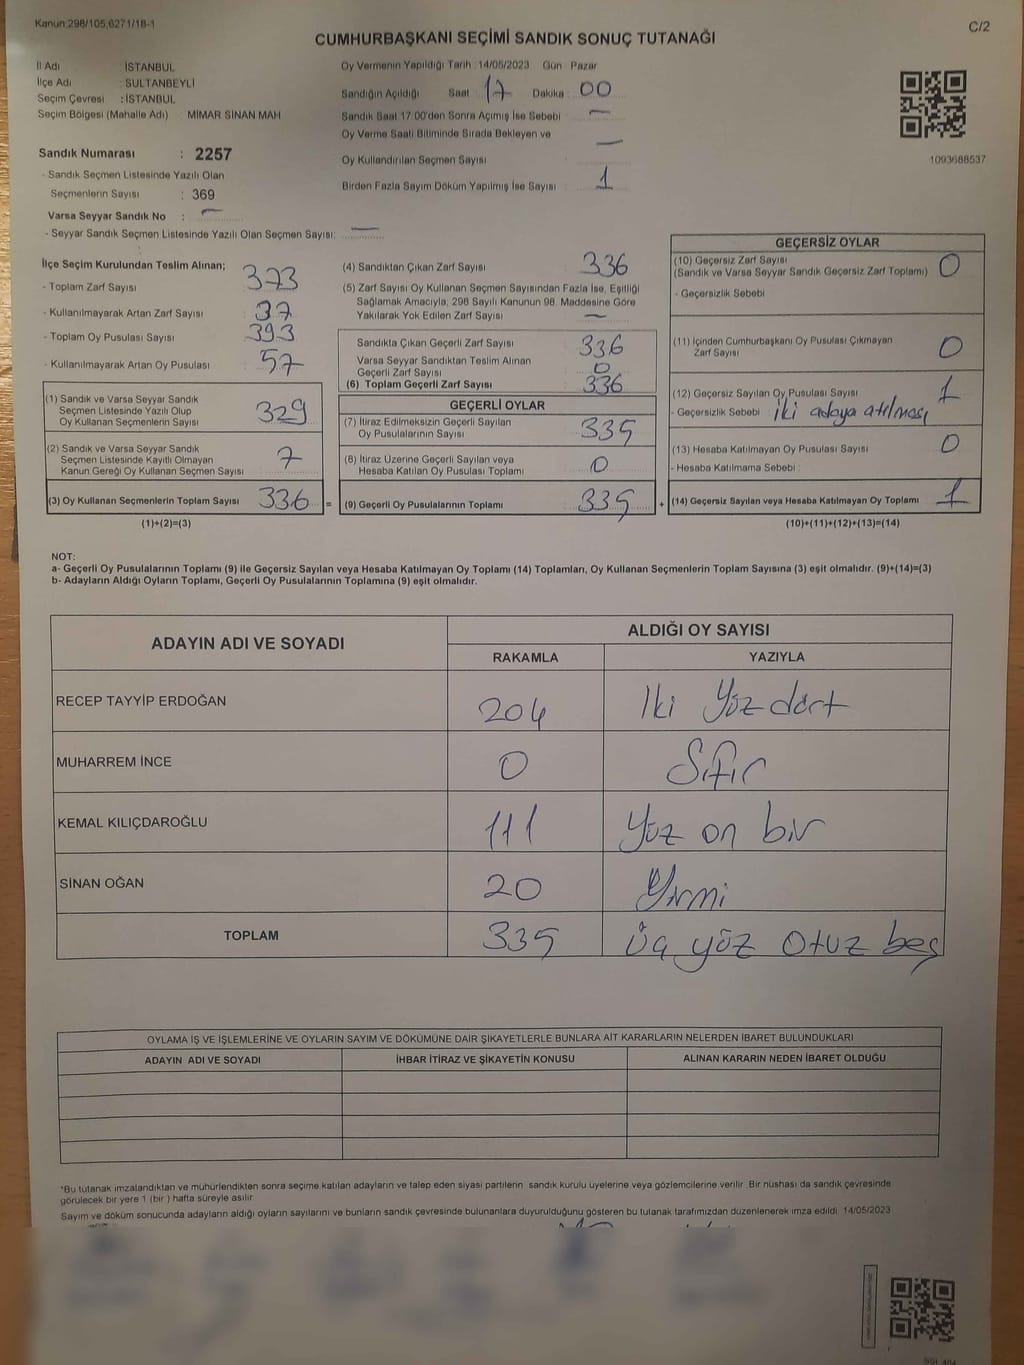 Kanun:298/105,6271/18-1
C/2
CUMHURBAŞKANI SEÇİMİ SANDIK SONUÇ TUTANAĞI
İl Adı : İSTANBUL
İlçe Adı : SULTANBEYLİ
Seçim Çevresi : İSTANBUL
Seçim Bölgesi (Mahalle Adı) MİMAR SİNAN MAH
Sandık Numarası : 2257
- Sandık Seçmen Listesinde Yazılı Olan
Seçmenlerin Sayısı : 369
Varsa Seyyar Sandık No : —
- Seyyar Sandık Seçmen Listesinde Yazılı Olan Seçmen Sayısı: —
Oy Vermenin Yapıldığı Tarih : 14/05/2023 Gün Pazar
Sandığın Açıldığı Saat 17 Dakika : 00
Sandık Saat 17.00'den Sonra Açımış İse Sebebi : —
Oy Verme Saati Bitiminde Sırada Bekleyen ve
Oy Kullandırılan Seçmen Sayısı : —
Birden Fazla Sayım Döküm Yapılmış İse Sayısı : 1
1093688537
İlçe Seçim Kurulundan Teslim Alınan;
- Toplam Zarf Sayısı 373
- Kullanılmayarak Artan Zarf Sayısı 37
- Toplam Oy Pusulası Sayısı 393
- Kullanılmayarak Artan Oy Pusulası 57
(1) Sandık ve Varsa Seyyar Sandık
Seçmen Listesinde Yazılı Olup
Oy Kullanan Seçmenlerin Sayısı 329
(2) Sandık ve Varsa Seyyar Sandık
Seçmen Listesinde Kayıtlı Olmayan
Kanun Gereği Oy Kullanan Seçmen Sayısı 7
(3) Oy Kullanan Seçmenlerin Toplam Sayısı 336 =
(1)+(2)=(3)
(4) Sandıktan Çıkan Zarf Sayısı 336
(5) Zarf Sayısı Oy Kullanan Seçmen Sayısından Fazla İse, Eşitliği
Sağlamak Amacıyla, 298 Sayılı Kanunun 98. Maddesine Göre
Yakılarak Yok Edilen Zarf Sayısı —
Sandıkta Çıkan Geçerli Zarf Sayısı 336
Varsa Seyyar Sandıktan Teslim Alınan
Geçerli Zarf Sayısı 0
(6) Toplam Geçerli Zarf Sayısı 336
GEÇERLİ OYLAR
(7) İtiraz Edilmeksizin Geçerli Sayılan
Oy Pusulalarının Sayısı 335
(8) İtiraz Üzerine Geçerli Sayılan veya
Hesaba Katılan Oy Pusulası Toplamı 0
(9) Geçerli Oy Pusulalarının Toplamı 335 +
GEÇERSİZ OYLAR
(10) Geçersiz Zarf Sayısı
(Sandık ve Varsa Seyyar Sandık Geçersiz Zarf Toplamı) 0
- Geçersizlik Sebebi
(11) İçinden Cumhurbaşkanı Oy Pusulası Çıkmayan
Zarf Sayısı 0
(12) Geçersiz Sayılan Oy Pusulası Sayısı 1
- Geçersizlik Sebebi iki adaya atılması
(13) Hesaba Katılmayan Oy Pusulası Sayısı 0
- Hesaba Katılmama Sebebi :
(14) Geçersiz Sayılan veya Hesaba Katılmayan Oy Toplamı 1
(10)+(11)+(12)+(13)=(14)
NOT:
a- Geçerli Oy Pusulalarının Toplamı (9) ile Geçersiz Sayılan veya Hesaba Katılmayan Oy Toplamı (14) Toplamları, Oy Kullanan Seçmenlerin Toplam Sayısına (3) eşit olmalıdır. (9)+(14)=(3)
b- Adayların Aldığı Oyların Toplamı, Geçerli Oy Pusulalarının Toplamına (9) eşit olmalıdır.
ADAYIN ADI VE SOYADI ALDIĞI OY SAYISI
RAKAMLA YAZIYLA
RECEP TAYYİP ERDOĞAN 204 İki Yüz dört
MUHARREM İNCE 0 Sıfır
KEMAL KILIÇDAROĞLU 111 Yüz on bir
SİNAN OĞAN 20 Yirmi
TOPLAM 335 üç yüz otuz beş
OYLAMA İŞ VE İŞLEMLERİNE VE OYLARIN SAYIM VE DÖKÜMÜNE DAİR ŞİKAYETLERLE BUNLARA AİT KARARLARIN NELERDEN İBARET BULUNDUKLARI
ADAYIN ADI VE SOYADI İHBAR İTİRAZ VE ŞİKAYETİN KONUSU ALINAN KARARIN NEDEN İBARET OLDUĞU
*Bu tutanak imzalandıktan ve mühürlendikten sonra seçime katılan adayların ve talep eden siyasi partilerin sandık kurulu üyelerine veya gözlemcilerine verilir. Bir nüshası da sandık çevresinde
görülecek bir yere 1 (bir ) hafta süreyle asılır.
Sayım ve döküm sonucunda adayların aldığı oyların sayılarını ve bunların sandık çevresinde bulunanlara duyurulduğunu gösteren bu tutanak tarafımızdan düzenlenerek imza edildi. 14/05/2023